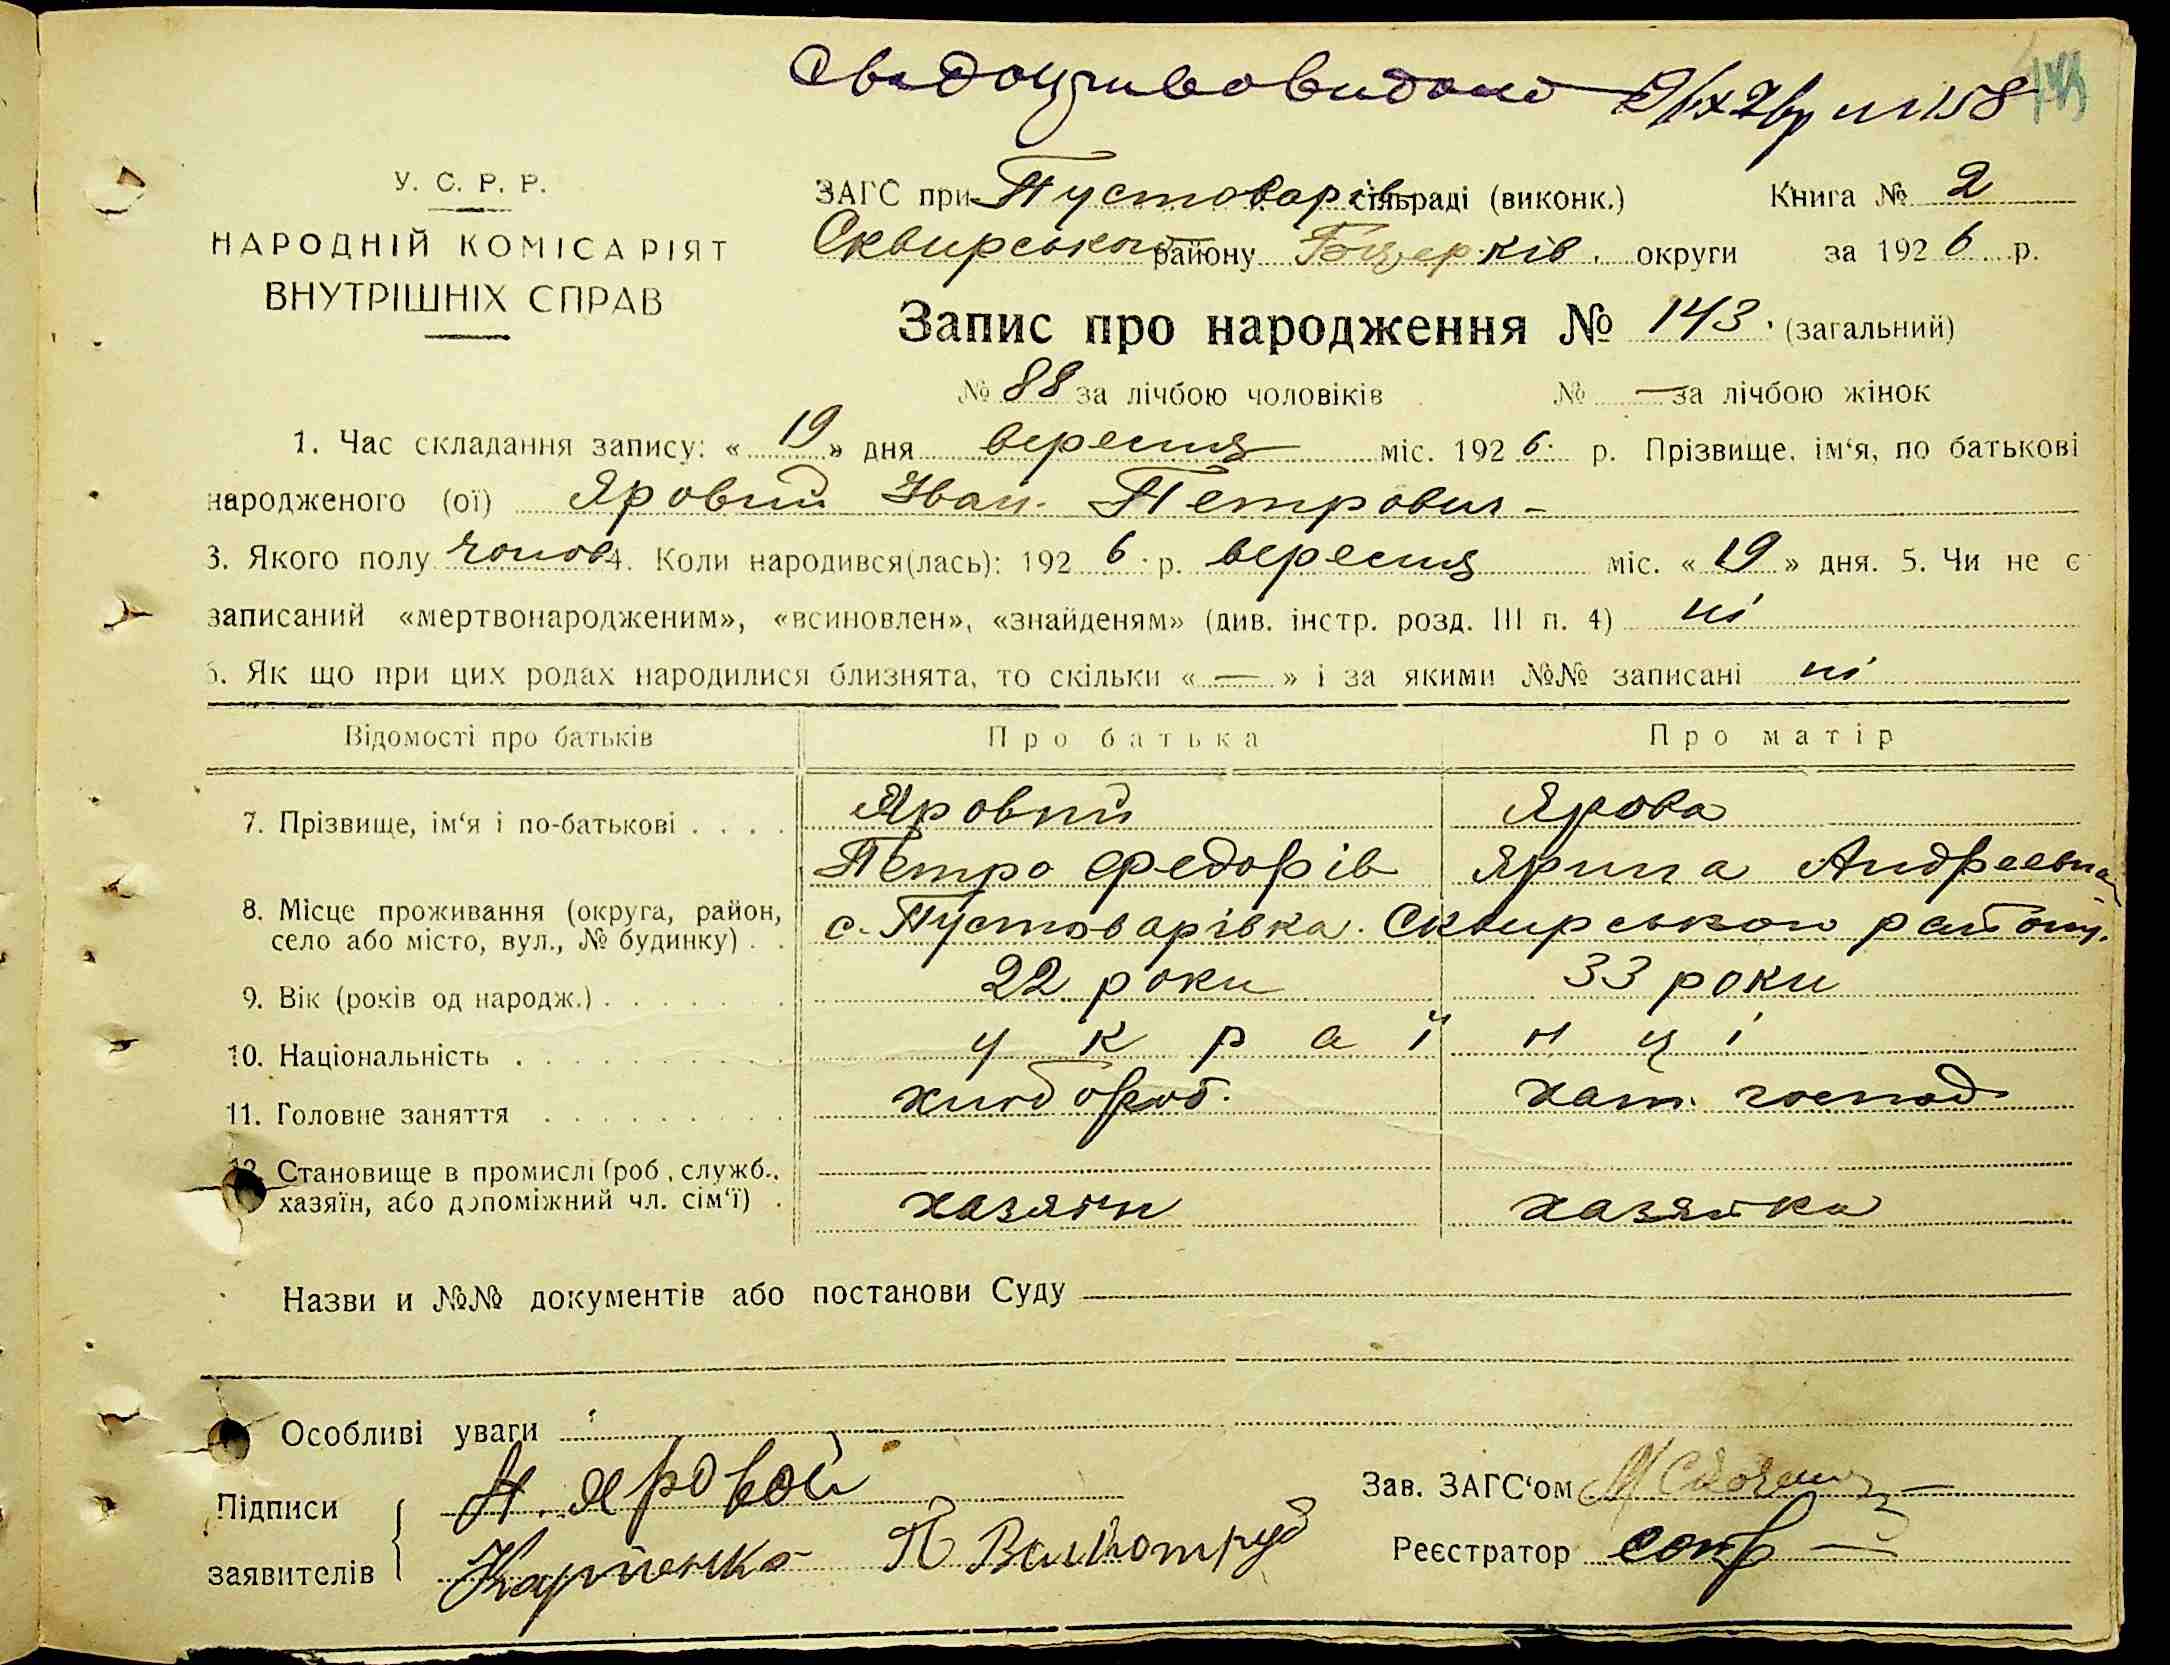 Свадоцтво видано № 158
У. С. Р. Р.
НАРОДНІЙ КОМІСАРІЯТ
ВНУТРІШНІХ СПРАВ
ЗАГС при Пустоварів сільраді (виконк.) Книга № 2
Сквирського району Б.Церків. округи за 1926 р.
Запис про народження № 143. (загальний)
№ 88 за лічбою чоловіків № — за лічбою жінок
1. Час складання запису: «19» дня вересня міс. 1926 р. Прізвище, ім‘я, по батькові
народженого (ої) Яровий Іван Петрович -
3. Якого полу чолов 4. Коли народився(лась): 1926 р. вересня міс. «19» дня. 5. Чи не є
записаний «мертвонародженим», «всиновлен», «знайденям» (див. інстр. розд. III п. 4) ні
6. Як що при цих родах народилися близнята, то скільки «—» і за якими №№ записані ні
Відомості про батьків Про батька Про матір
7. Прізвище, ім‘я і по-батькові . . . . Яровий Ярова
Петро Федорів Ярина Андреевна
8. Місце проживання (округа, район,
село або місто, вул., № будинку) . . с. Пустоварівка. Сквирського району.
9. Вік (років од народж.) . . . . . . . 22 роки 33 роки
10. Національність . . . . . . . . . . українці
11. Головне заняття . . . . . . . . . хлібороб. хат. господ
12. Становище в промислі (роб., служб.,
хазяїн, або допоміжний чл. сім‘ї) . хазяїн хазяйка
Назви и №№ документів або постанови Суду
Особливі уваги
Підписи Яровой Зав. ЗАГС‘ом
заявителів Карпенко П Реєстратор